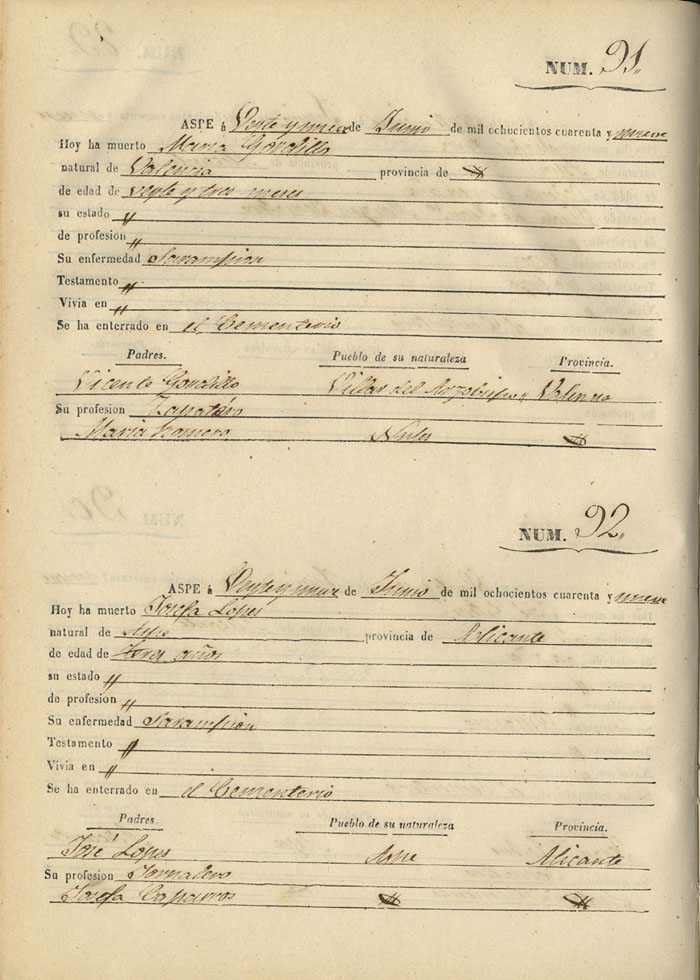 NUM. 91.
ASPE á Veinte y nueve de Junio de mil ochocientos cuarenta y nueve
Hoy ha muerto Maria Gordillo
natural de Valencia provincia de "
de edad de veynte y tres meses
su estado "
de profesion "
Su enfermedad Sarampion
Testamento "
Vivia en "
Se ha enterrado en el Cementerio
Padres. Pueblo de su naturaleza Provincia.
Vicente Gordillo Villar del Arzobispo Valencia
Su profesion Zapatero
Maria Romero Nules "
NUM. 92.
ASPE á Veynte y nueve de Junio de mil ochocientos cuarenta y nueve
Hoy ha muerto Josefa Lopes
natural de Aspe provincia de Alicante
de edad de tres años
su estado "
de profesion "
Su enfermedad Sarampion
Testamento "
Vivia en "
Se ha enterrado en el Cementerio
Padres Pueblo de su naturaleza Provincia.
José Lopes Aspe Alicante
Su profesion Jornalero
Josefa Caparros " "